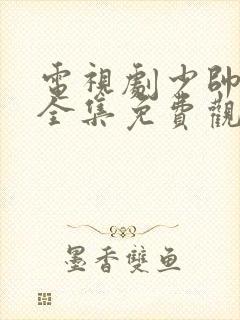 電視劇少帥
全集免費觀
墨香雙鱼